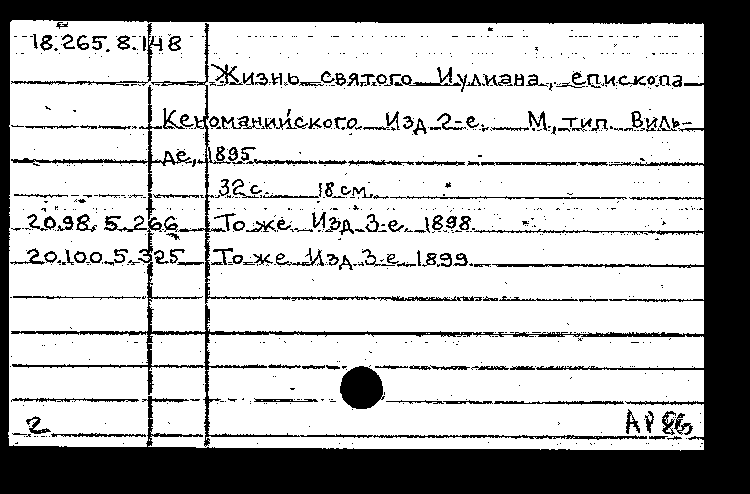 18.265.8.148
Жизнь святого Иулиана, епископа
Кеноманийского Изд. 2-е. М, тип. Виль-
де, 1895.
32 с. 18 см.
20.98.5.266 То же Изд. 3-е. 1898.
20.100.5.325 То же Изд. 3-е. 1899.
2 АР 86